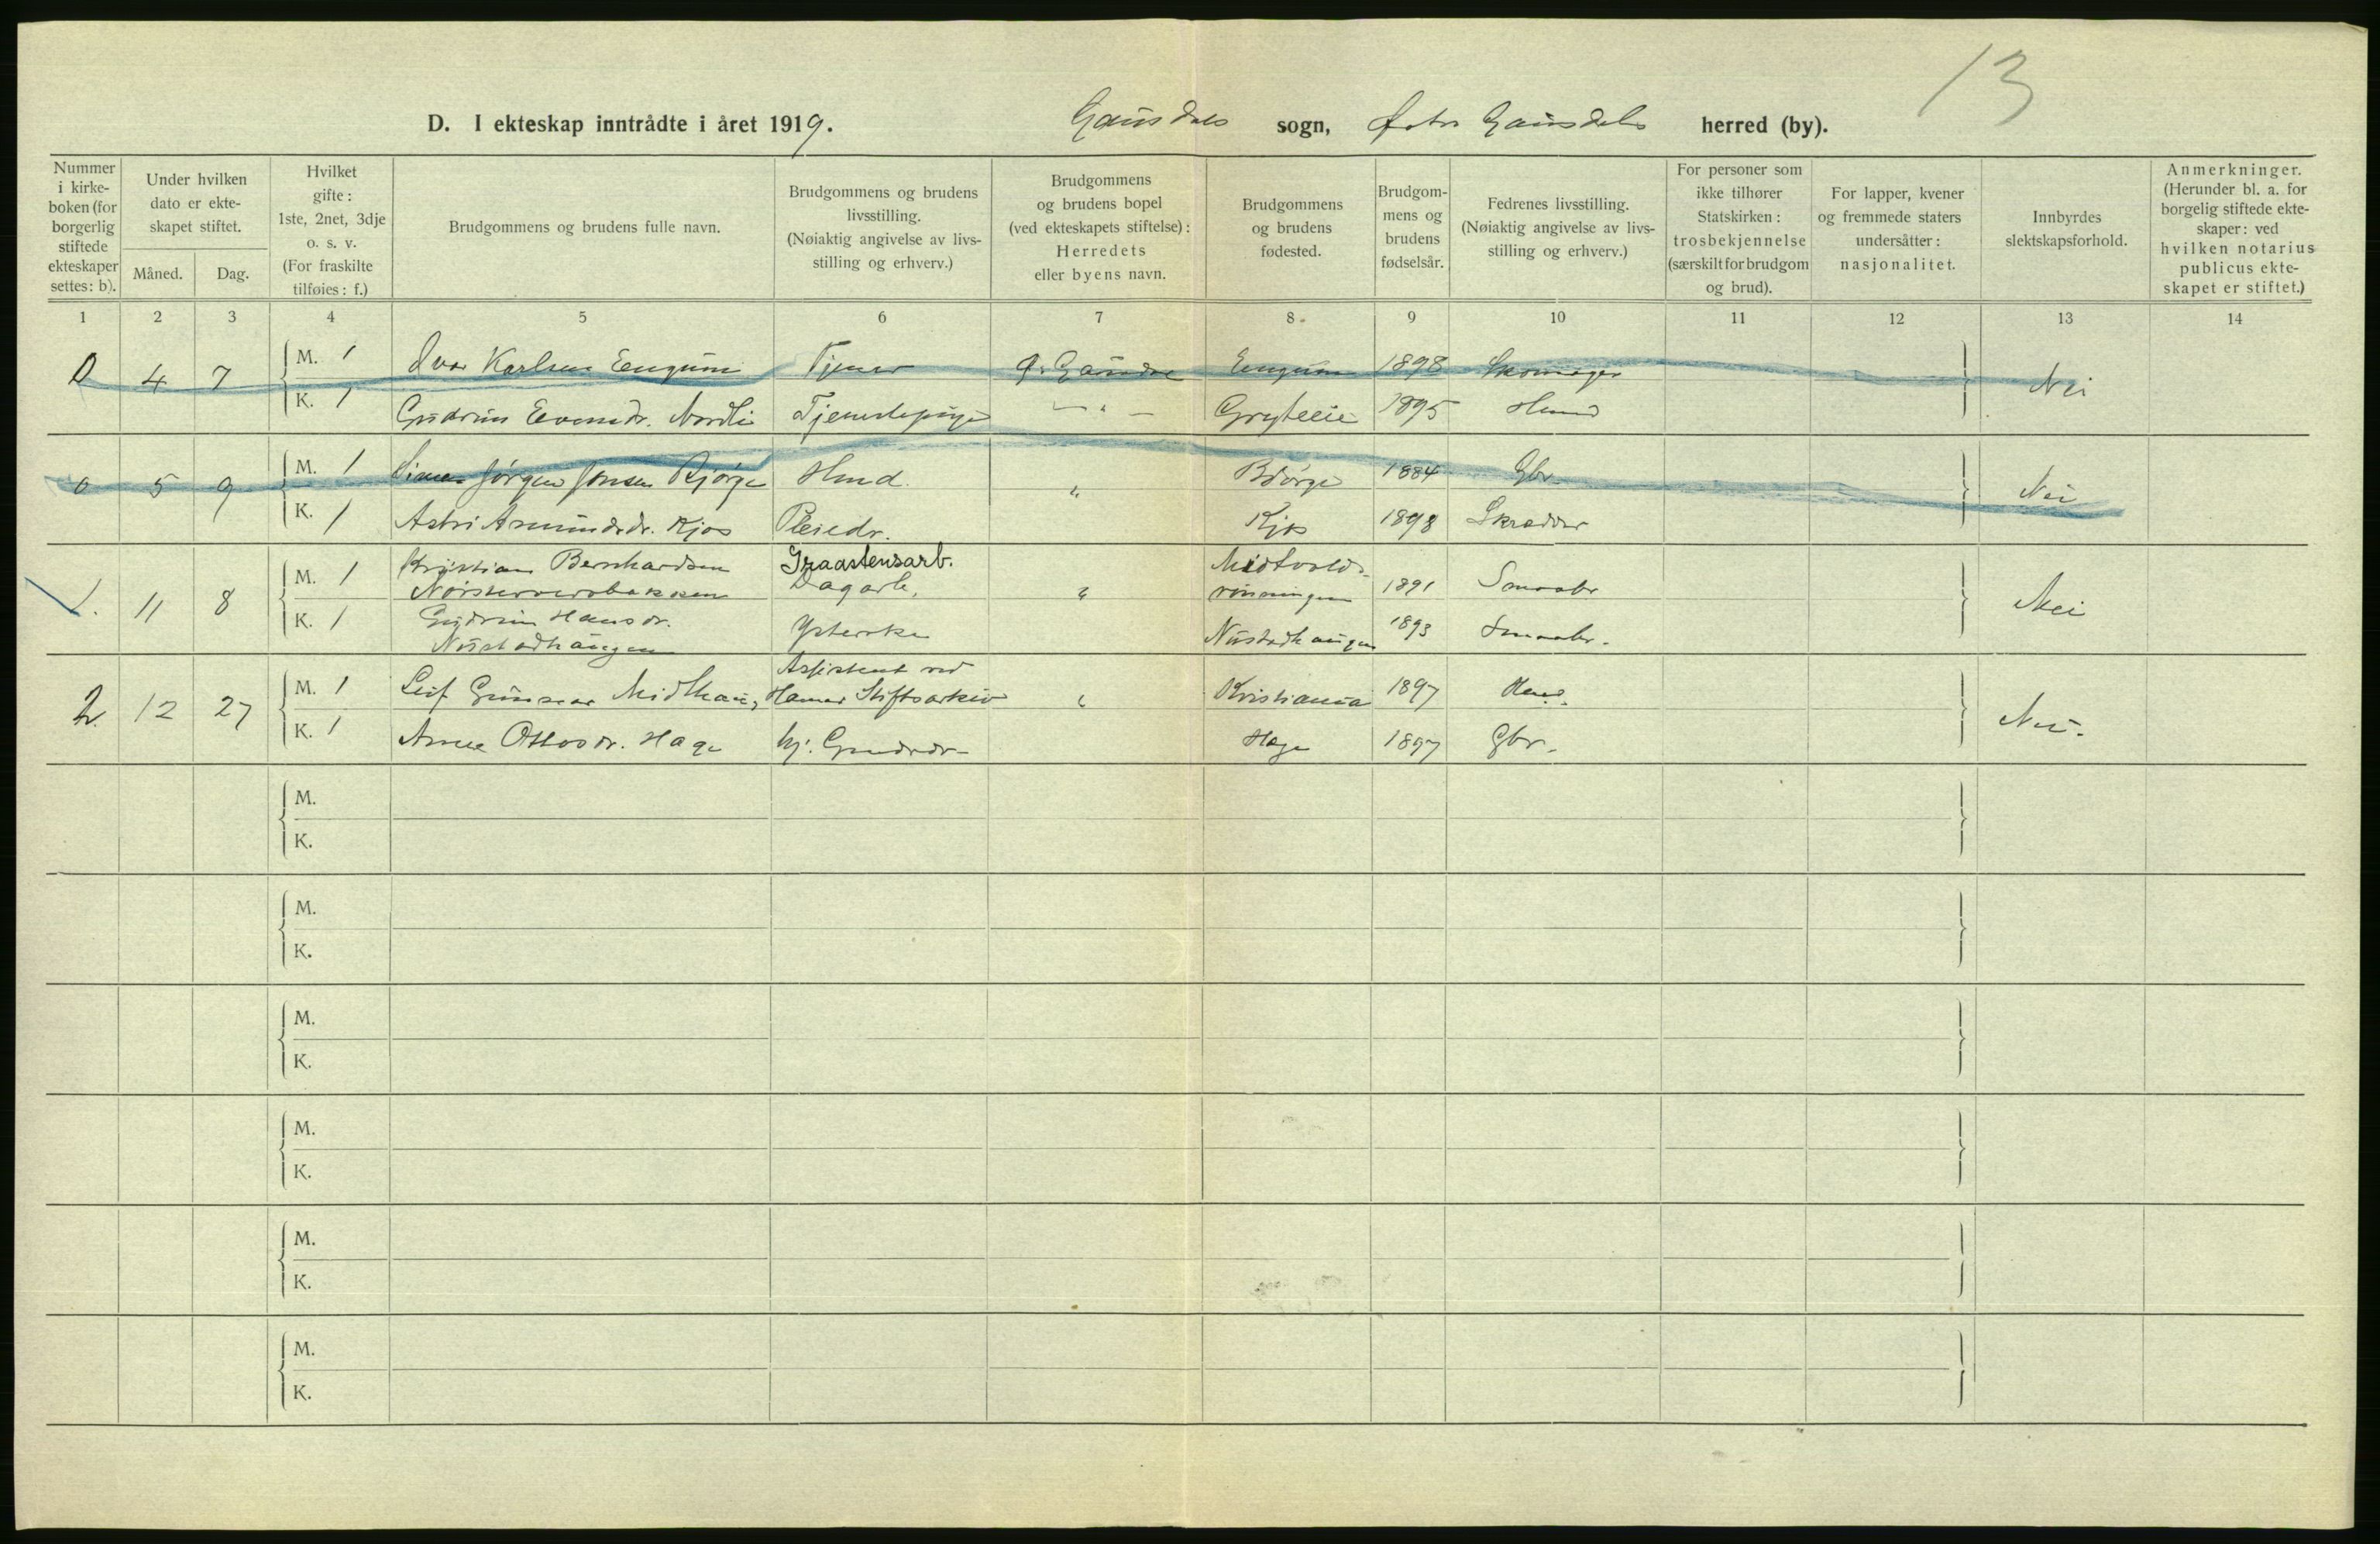 13
D. I ekteskap inntrådte i året 1919. Gausdals sogn, Østre Gausdals herred (by).
Nummer i kirke-boken (for borgerlig stiftede ekteskaper settes: b).
Under hvilken dato er ekte-skapet stiftet.
Måned. Dag.
Hvilket gifte: 1ste, 2net, 3dje o. s. v. (For fraskilte tilføies: f.)
Brudgommens og brudens fulle navn.
Brudgommens og brudens livsstilling. (Nøiaktig angivelse av livs-stilling og erhverv.)
Brudgommens og brudens bopel (ved ekteskapets stiftelse): Herredets eller byens navn.
Brudgommens og brudens fødested.
Brudgom-mens og brudens fødselsår.
Fedrenes livsstilling. (Nøiaktig angivelse av livs-stilling og erhverv.)
For personer som ikke tilhører Statskirken: trosbekjennelse (særskilt for brudgom og brud).
For lapper, kvener og fremmede staters undersåtter: nasjonalitet.
Innbyrdes slektskapsforhold.
Anmerkninger. (Herunder bl. a. for borgelig stiftede ekte-skaper: ved hvilken notarius publicus ekte-skapet er stiftet.)
1 2 3 4 5 6 7 8 9 10 11 12 13 14
0 4 7 M. 1 Ivar Karlsen Engum Tjener Ø. Gausdal Engum 1898 Skomager Nei
K. 1 Gudrun Evensdr. Nordli Tjenestepige — " — 1895 Hmd
0 5 9 M. 1 Simen Jørgen Jonsen Bjørge Hmd. " Bjørge 1884 Gbr. Nei
K. 1 Astri Amundsdr. Kjos Pleiedr. Kjos 1898 Skrædder
1. 11 8 M. 1 Kristian Bernhardsen Graastensarb. Midtvolds-
Dagarb. " rønningen 1891 Smaabr Nei
K. 1 Gudrun Hansdr. Ysterske Nustadhaugen 1893 Smaabr.
Nustadhaugen
2. 12 27 M. 1 Leif Gunnar Midthaug Assistent ved
Hamar Stiftsarkiv " Kristiania 1897 Nei.
K. 1 Anne Ottosdr. Hage hj. Gmdrdr. Hage 1897 Gbr.
M.
K.
M.
K.
M.
K.
M.
K.
M.
K.
M.
K.